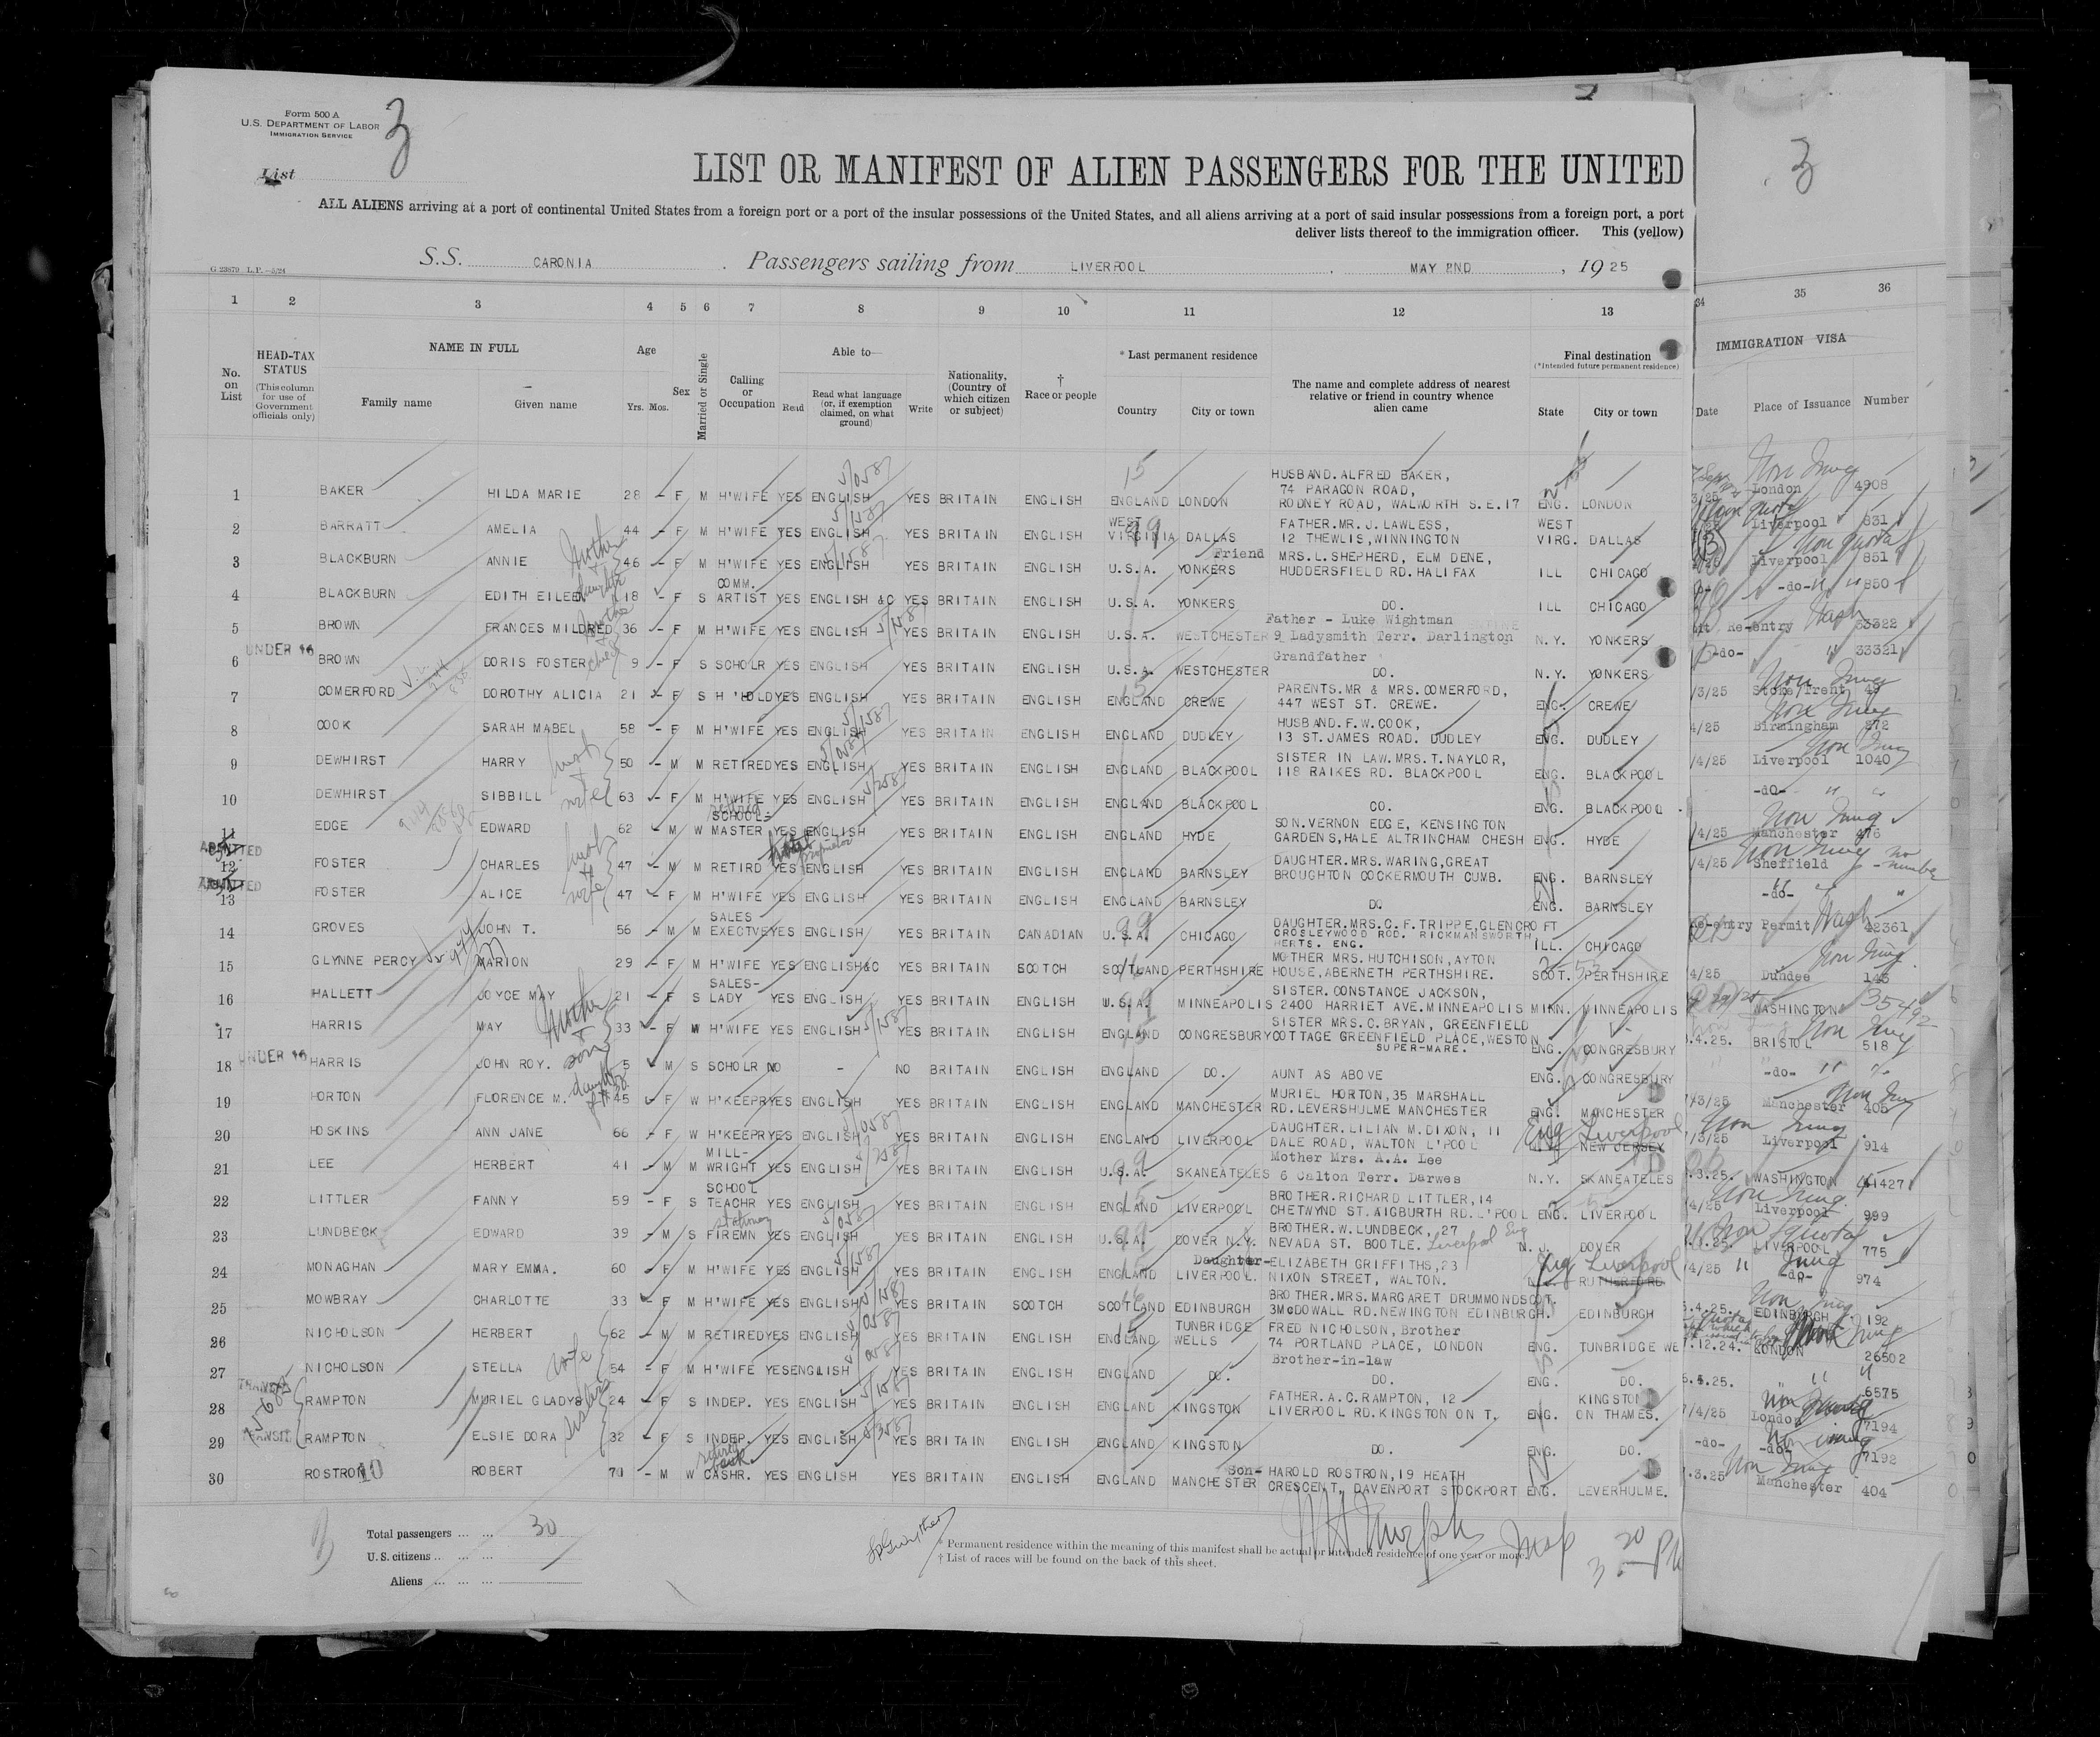 Form 500 A
U.S. DEPARTMENT OF LABOR
IMMIGRATION SERVICE
3
3
List
LIST OR MANIFEST OF ALIEN PASSENGERS FOR THE UNITED
ALL ALIENS arriving at a port of continental United States from a foreign port or a port of the insular possessions of the United States, and all aliens arriving at a port of said insular possessions from a foreign port, a port
deliver lists thereof to the immigration officer. This (yellow)
G 23879 L.P.—5/24
S.S. CARONIA . Passengers sailing from LIVERPOOL , MAY 2ND , 1925
1 2 3 4 5 6 7 8 9 10 11 12 13 34 35 36
No. on List
HEAD-TAX STATUS (This column for use of Government officials only)
NAME IN FULL
Family name
Given name
Age
Yrs. Mos.
Sex
Married or Single
Calling or Occupation
Able to—
Read
Read what language (or, if exemption claimed, on what ground)
Write
Nationality, (Country of which citizen or subject)
† Race or people
* Last permanent residence
Country
City or town
The name and complete address of nearest relative or friend in country whence alien came
Final destination
(*Intended future permanent residence)
State
City or town
IMMIGRATION VISA
Date
Place of Issuance
Number
1 BAKER HILDA MARIE 28 - F M H'WIFE YES ENGLISH YES BRITAIN ENGLISH ENGLAND LONDON HUSBAND.ALFRED BAKER, 74 PARAGON ROAD, RODNEY ROAD, WALWORTH S.E.17 ENG. LONDON 3/25 London 4908
2 BARRATT AMELIA 44 - F M H'WIFE YES ENGLISH YES BRITAIN ENGLISH WEST VIRGINIA DALLAS FATHER.MR.J.LAWLESS, 12 THEWLIS,WINNINGTON WEST VIRG. DALLAS Liverpool 831
3 BLACKBURN ANNIE 46 - F M H'WIFE YES ENGLISH YES BRITAIN ENGLISH U.S.A. YONKERS Friend MRS.L.SHEPHERD, ELM DENE, HUDDERSFIELD RD.HALIFAX ILL CHICAGO Liverpool 851
4 BLACKBURN EDITH EILEEN 18 - F S COMM. ARTIST YES ENGLISH &C YES BRITAIN ENGLISH U.S.A. YONKERS DO. ILL CHICAGO -do- 850
5 BROWN FRANCES MILDRED 36 - F M H'WIFE YES ENGLISH YES BRITAIN ENGLISH U.S.A. WESTCHESTER Father - Luke Wightman 9 Ladysmith Terr. Darlington N.Y. YONKERS Re-entry Wash 33322
6 UNDER 16 BROWN DORIS FOSTER 9 - F S SCHOLR YES ENGLISH YES BRITAIN ENGLISH U.S.A. WESTCHESTER Grandfather DO. N.Y. YONKERS -do- 33321
7 COMERFORD DOROTHY ALICIA 21 - F S H'HOLD YES ENGLISH YES BRITAIN ENGLISH ENGLAND CREWE PARENTS.MR & MRS.COMERFORD, 447 WEST ST. CREWE. ENG. CREWE /3/25 Stoke/Trent 49
8 COOK SARAH MABEL 58 - F M H'WIFE YES ENGLISH YES BRITAIN ENGLISH ENGLAND DUDLEY HUSBAND.F.W.COOK, 13 ST.JAMES ROAD. DUDLEY ENG. DUDLEY 4/25 Birmingham 272
9 DEWHIRST HARRY 50 - M M RETIRED YES ENGLISH YES BRITAIN ENGLISH ENGLAND BLACKPOOL SISTER IN LAW.MRS.T.NAYLOR, 118 RAIKES RD. BLACKPOOL ENG. BLACKPOOL /4/25 Liverpool 1040
10 DEWHIRST SIBBILL 63 - F M H'WIFE YES ENGLISH YES BRITAIN ENGLISH ENGLAND BLACKPOOL CO. ENG. BLACKPOOL -do- " "
11 EDGE EDWARD 62 - M W retired SCHOOL-MASTER YES ENGLISH YES BRITAIN ENGLISH ENGLAND HYDE SON.VERNON EDGE, KENSINGTON GARDENS,HALE ALTRINCHAM CHESH ENG. HYDE /4/25 Manchester 476
12 ADMITTED FOSTER CHARLES 47 - M M RETIRD hotel proprietor YES ENGLISH YES BRITAIN ENGLISH ENGLAND BARNSLEY DAUGHTER.MRS.WARING,GREAT BROUGHTON COCKERMOUTH CUMB. ENG. BARNSLEY /4/25 Sheffield - no number
13 ADMITTED FOSTER ALICE 47 - F M H'WIFE YES ENGLISH YES BRITAIN ENGLISH ENGLAND BARNSLEY DO ENG. BARNSLEY -do- "
14 GROVES JOHN T. 56 - M M SALES EXECTVE YES ENGLISH YES BRITAIN CANADIAN U.S.A. CHICAGO DAUGHTER.MRS.C.F.TRIPPE,GLENCROFT CROSLEYWOOD ROD. RICKMANSWORTH HERTS. ENG. ILL. CHICAGO Re-entry Permit Wash 42361
15 GLYNNE PERCY MARION 29 - F M H'WIFE YES ENGLISH&C YES BRITAIN SCOTCH SCOTLAND PERTHSHIRE MOTHER MRS.HUTCHISON,AYTON HOUSE,ABERNETH PERTHSHIRE. SCOT. PERTHSHIRE 4/25 Dundee 145
16 HALLETT JOYCE MAY 21 - F S SALES-LADY YES ENGLISH YES BRITAIN ENGLISH U.S.A. MINNEAPOLIS SISTER.CONSTANCE JACKSON, 2400 HARRIET AVE.MINNEAPOLIS MINN. MINNEAPOLIS WASHINGTON 35492
17 HARRIS MAY 33 - F M H'WIFE YES ENGLISH YES BRITAIN ENGLISH ENGLAND CONGRESBURY SISTER MRS.C.BRYAN, GREENFIELD COTTAGE GREENFIELD PLACE,WESTON SUPER-MARE. ENG. CONGRESBURY .4.25. BRISTOL 518
18 UNDER 16 HARRIS JOHN ROY. 5 M S SCHOLR NO - NO BRITAIN ENGLISH ENGLAND DO. AUNT AS ABOVE ENG. CONGRESBURY -do- " "
19 HORTON FLORENCE M. 45 F W H'KEEPR YES ENGLISH YES BRITAIN ENGLISH ENGLAND MANCHESTER MURIEL HORTON,35 MARSHALL RD.LEVERSHULME MANCHESTER ENG. MANCHESTER /3/25 Manchester 405
20 HOSKINS ANN JANE 66 - F W H'KEEPR YES ENGLISH YES BRITAIN ENGLISH ENGLAND LIVERPOOL DAUGHTER.LILIAN M.DIXON, 11 DALE ROAD, WALTON L'POOL Eng Liverpool NEW JERSEY /3/25 Liverpool 914
21 LEE HERBERT 41 - M M MILL-WRIGHT YES ENGLISH YES BRITAIN ENGLISH U.S.A. SKANEATELES Mother Mrs. A.A. Lee 6 Calton Terr. Darwes N.Y. SKANEATELES .3.25. WASHINGTON 41427
22 LITTLER FANNY 59 - F S SCHOOL TEACHR YES ENGLISH YES BRITAIN ENGLISH ENGLAND LIVERPOOL BROTHER.RICHARD LITTLER,14 CHETWYND ST.AIGBURTH RD.L'POOL ENG. LIVERPOOL 4/25 Liverpool 999
23 LUNDBECK EDWARD 39 - M S stationary FIREMN YES ENGLISH YES BRITAIN ENGLISH U.S.A. DOVER N.Y. BROTHER.W.LUNDBECK, 27 NEVADA ST. BOOTLE. Liverpool Eng N.J. DOVER LIVERPOOL 775
24 MONAGHAN MARY EMMA. 60 F M H'WIFE YES ENGLISH YES BRITAIN ENGLISH ENGLAND LIVERPOOL. Daughter-ELIZABETH GRIFFITHS,23 NIXON STREET, WALTON. Eng Liverpool RUTHERFORD /4/25 -do- 974
25 MOWBRAY CHARLOTTE 33 - F M H'WIFE YES ENGLISH YES BRITAIN SCOTCH SCOTLAND EDINBURGH BROTHER.MRS.MARGARET DRUMMOND 3McDOWALL RD.NEWINGTON EDINBURGH. SCOT. EDINBURGH .4.25. EDINBURGH 192
26 NICHOLSON HERBERT 62 - M M RETIRED YES ENGLISH YES BRITAIN ENGLISH ENGLAND TUNBRIDGE WELLS FRED NICHOLSON, Brother 74 PORTLAND PLACE, LONDON ENG. TUNBRIDGE WE .12.24. LONDON 26502
27 NICHOLSON STELLA 54 - F M H'WIFE YES ENGLISH YES BRITAIN ENGLISH ENGLAND DO. Brother-in-law DO. ENG. DO. .25. " 6575
28 TRANSIT RAMPTON MURIEL GLADYS 24 - F S INDEP. YES ENGLISH YES BRITAIN ENGLISH ENGLAND KINGSTON FATHER.A.C.RAMPTON, 12 LIVERPOOL RD.KINGSTON ON T. ENG. KINGSTON ON THAMES. /4/25 London 7194
29 TRANSIT RAMPTON ELSIE DORA 32 - F S INDEP. YES ENGLISH YES BRITAIN ENGLISH ENGLAND KINGSTON DO. ENG. DO. -do- -do- 7192
30 ROSTRON ROBERT 70 - M W retired bank CASHR. YES ENGLISH YES BRITAIN ENGLISH ENGLAND MANCHESTER Son-HAROLD ROSTRON,19 HEATH CRESCENT, DAVENPORT STOCKPORT ENG. LEVERHULME. .3.25 Manchester 404
Total passengers ... ... 30
U.S. citizens ... ... ...
Aliens ... ... ...
* Permanent residence within the meaning of this manifest shall be actual or intended residence of one year or more.
† List of races will be found on the back of this sheet.